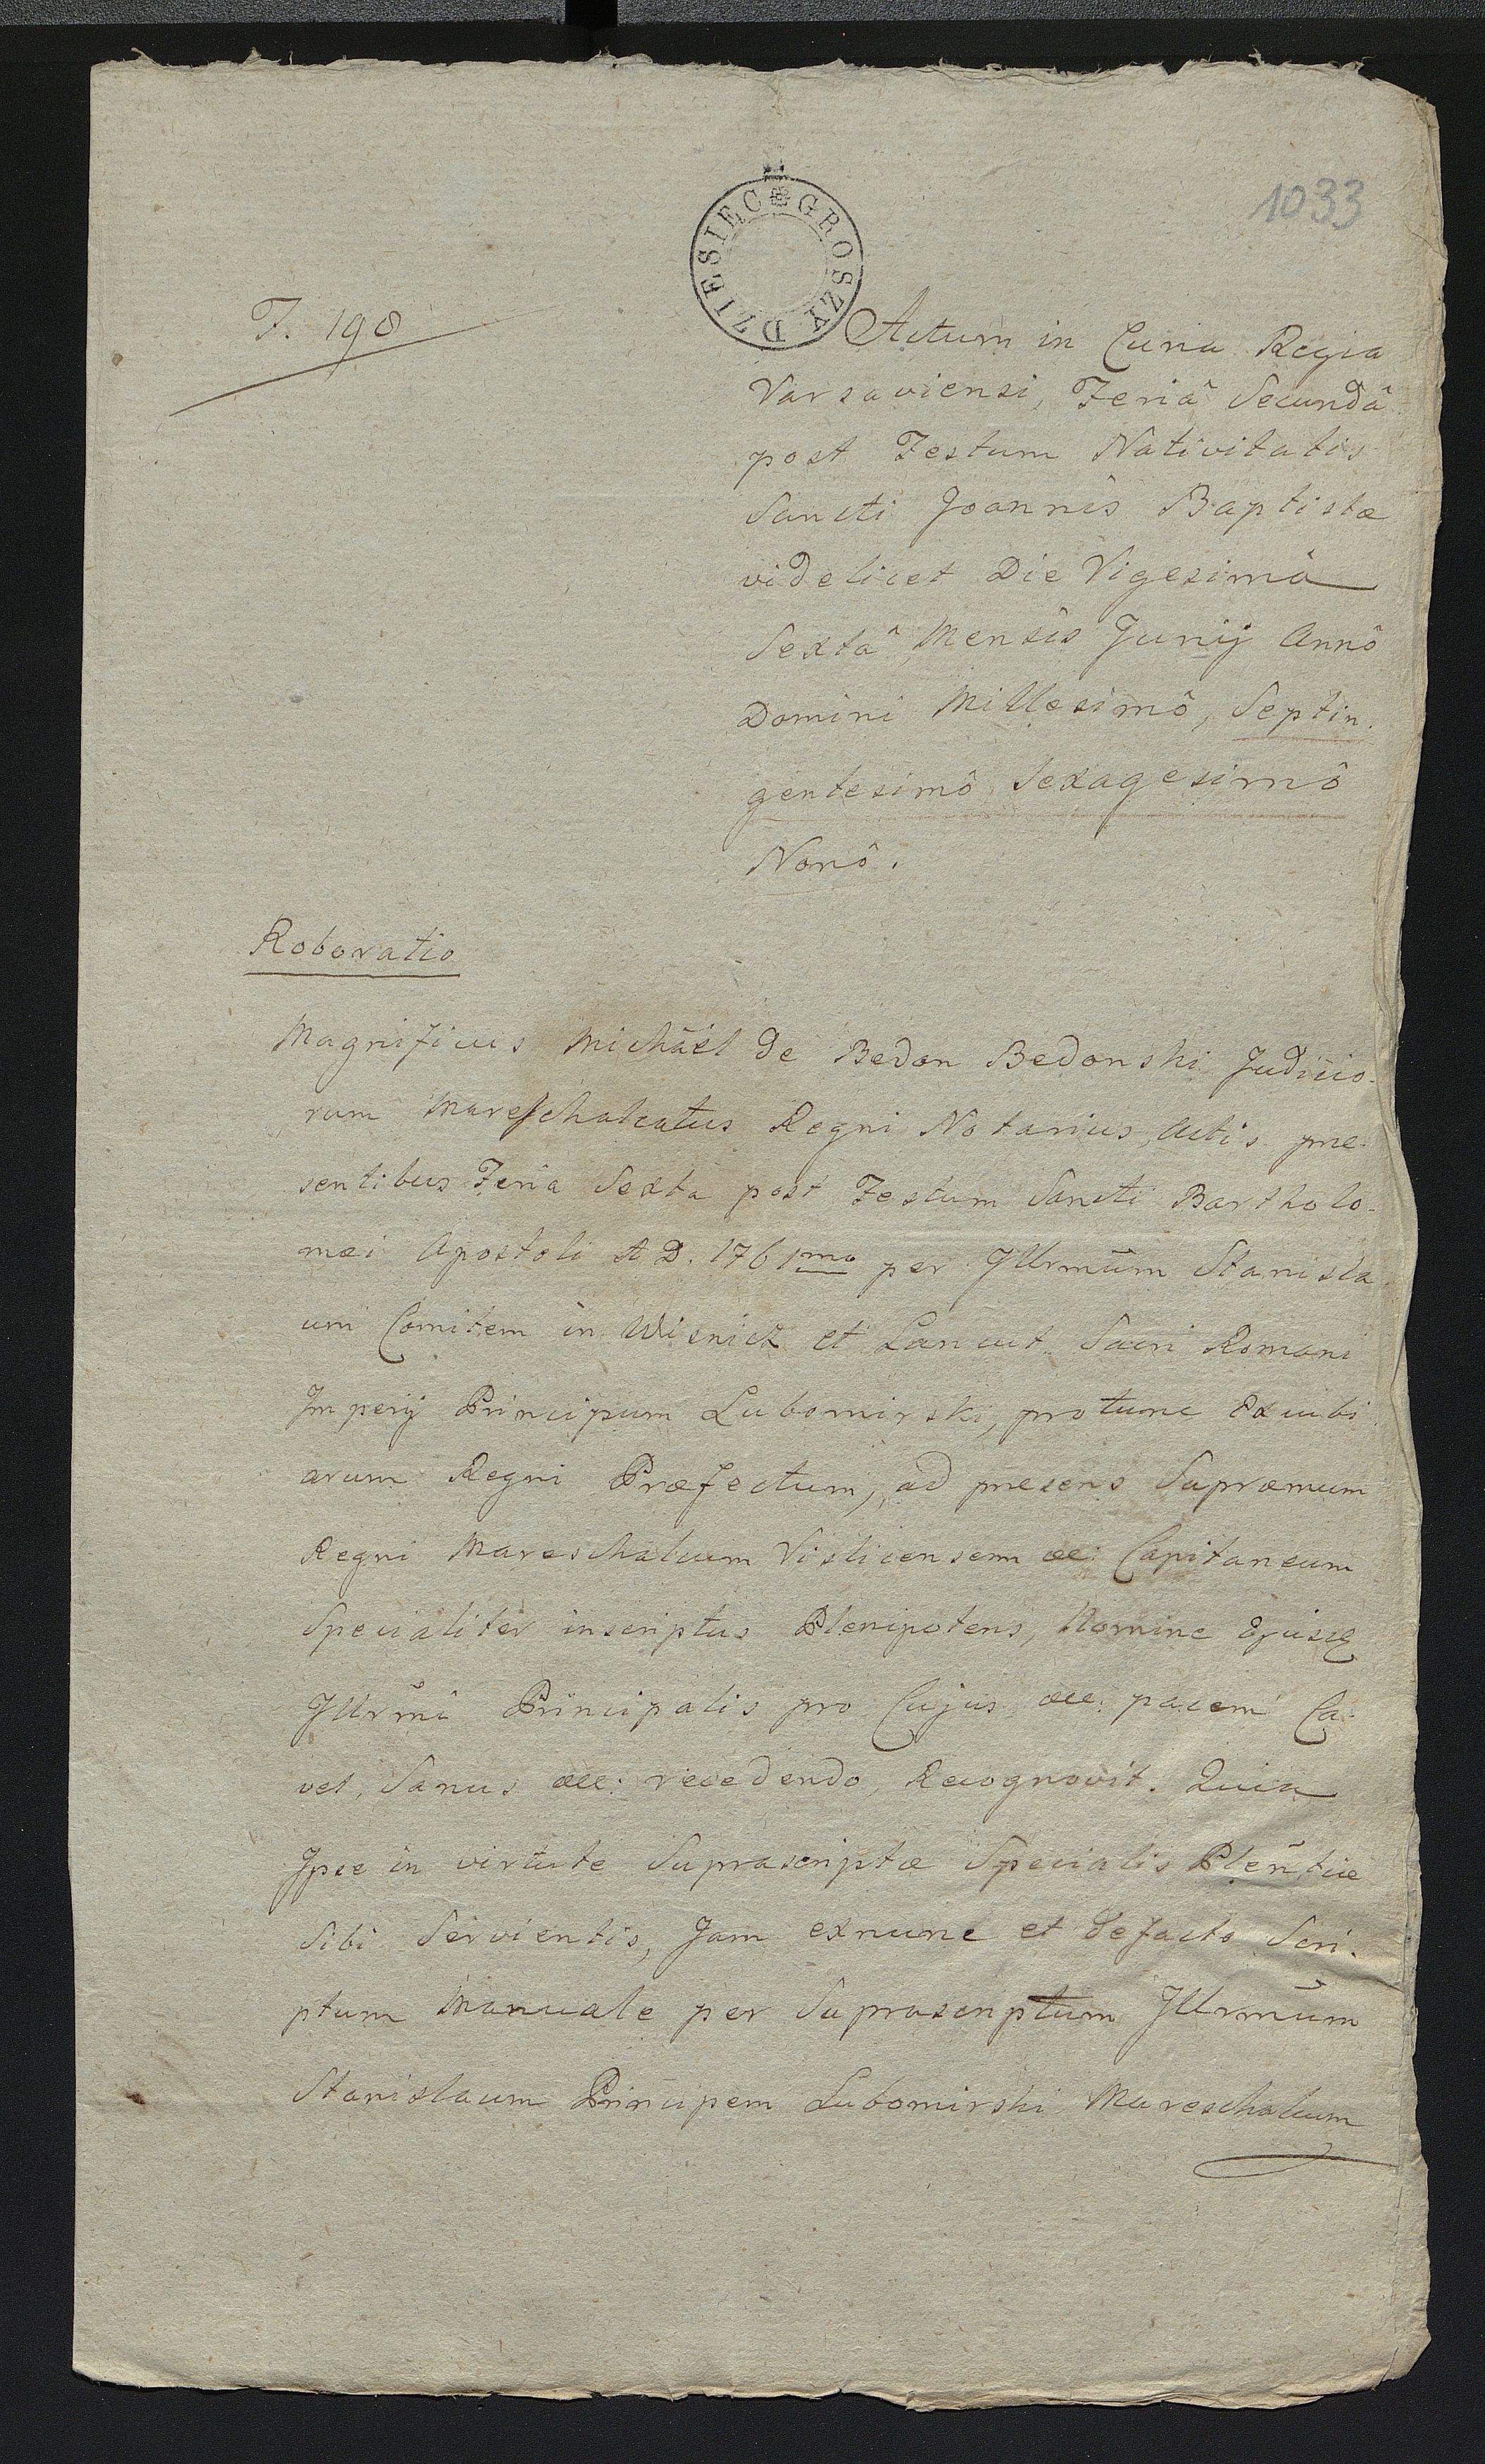 1033
DZIESIEC GROSZY
F. 198
Actum in Curia Regia
Varsaviensi, Feriâ Secundâ
post Festum Nativitatis
Sancti Joannis Baptistæ
videlicet Die Vigesimâ
Sextâ Mensis Junij Annô
Domini Millesimô, Septin-
gentesimô Sexagesimô
Nonô.
Roboratio
Magnificus Michäel de Bedon Bedonski Judicio-
rum Mareschalcatus Regni Notarius, Actis præ-
sentibus Feria Sexta post Festum Sancti Bartholo-
mæi Apostoli A D. 1761mo per Jllrmūm Stanisla
um Comitem in Wisnicz et Lancut Sacri Romani
Jmperij Principum Lubomirski, protunc Excubi
arum Regni Præfectum, ad præsens Supræmum
Regni Mareschalcum Vislicensem æc: Capitaneum
Specialiter inscriptus Plenipotens, Nomine Ejusq
Jllrmi Principalis pro Cujus æc: pacem Ca-
vet, Sanus æc: recedendo, Recognovit. Quia
Jpse in virtute Suprascriptæ Specialis Pleñtiæ
Sibi Servientis, Jam exnunc et defacto Scri-
ptum Manuale per Suprascriptum Jllrmūm
Stanislaum Principem Lubomirski Mareschalcum